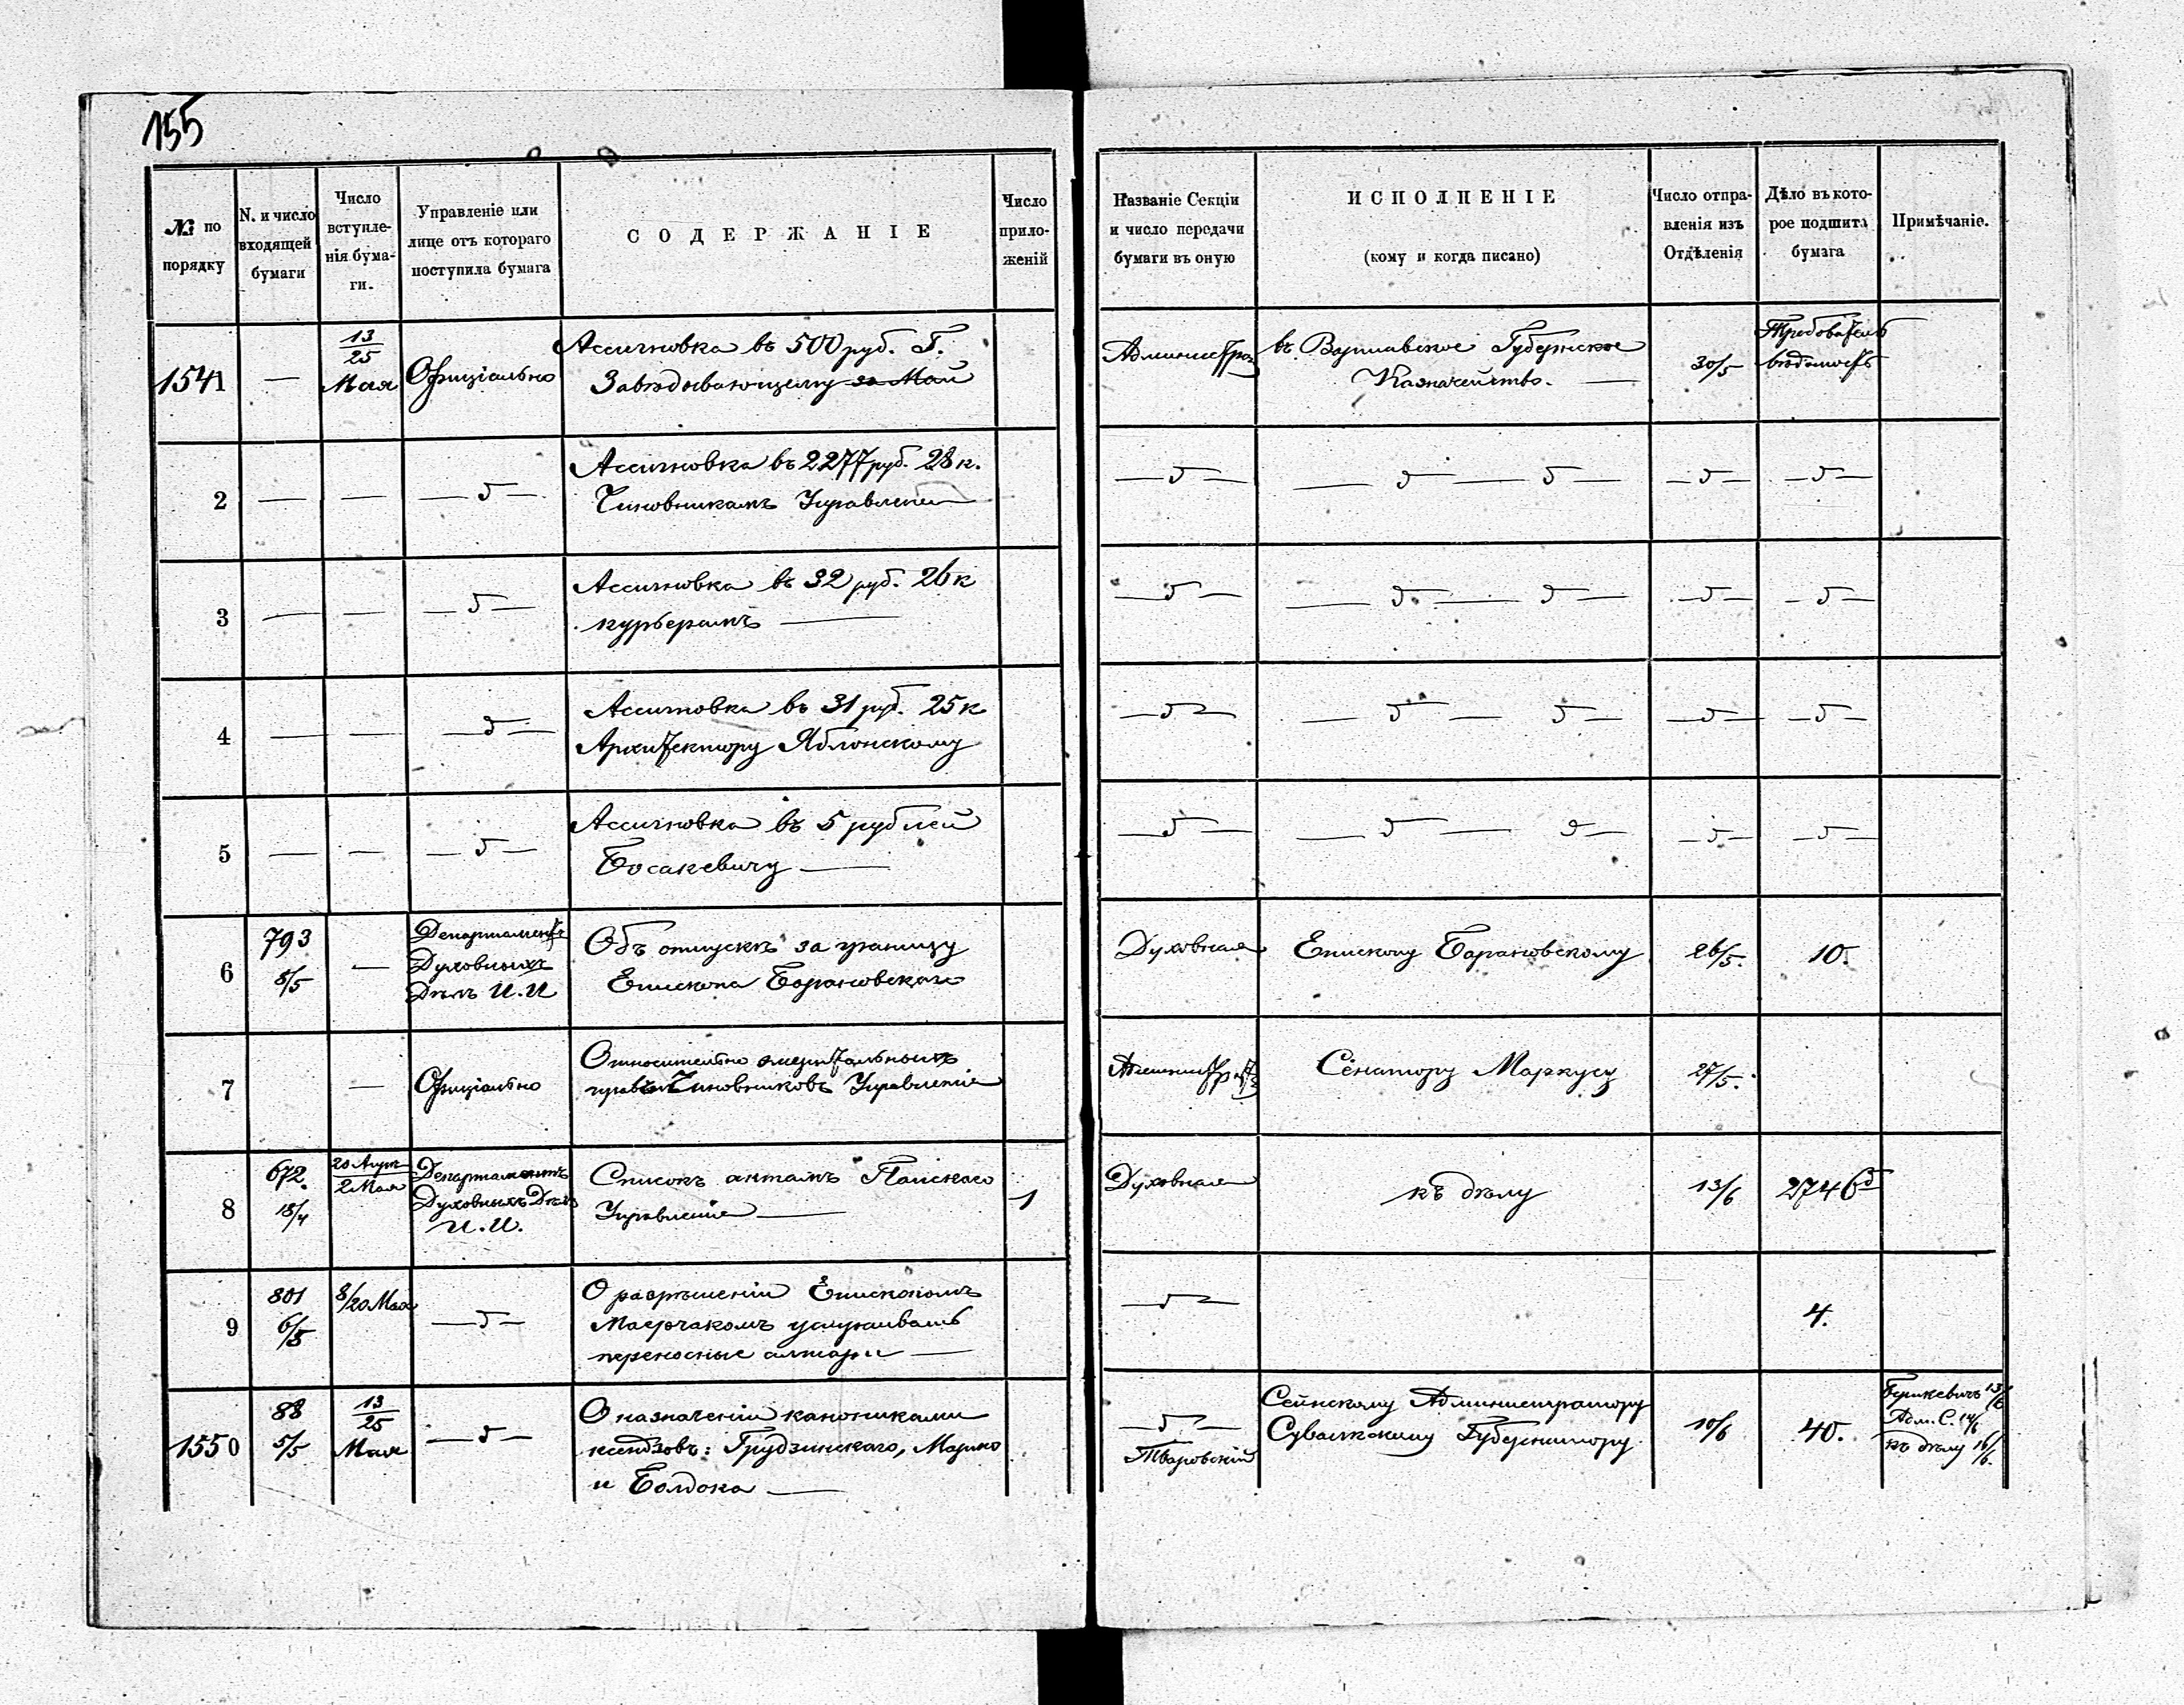 155
№ по порядку
N. и число входящей бумаги
Число вступленія бумаги.
Управленіе или лице отъ котораго поступила бумага
СОДЕРЖАНІЕ
Число приложеній
Названіе Секціи и число передачи бумаги въ оную
ИСПОЛНЕНІЕ
(кому и когда писано)
Число отправленія изъ Отдѣленія
Дѣло въ которое подшита бумага
Примѣчаніе.
1541 — 13/25 Мая Офиціально
Ассигновка въ 500 руб. Г.
Завѣдывающему за Май
Администрац
въ Варшавское Губернское
Казначейство. —
30/5
Требователь
вѣдомость
2 — — — „ —
Ассигновка въ 2277 руб. 28 к.
Чиновникамъ Управленія
— „ — — „ — „ — — „ — — „ —
3 — — — „ —
Ассигновка въ 32 руб. 26 к
курьерамъ —
— „ — — „ — „ — — „ — — „ —
4 — — — „ —
Ассигновка въ 31 руб. 25 к
Архитектору Яблонскому
— „ — — „ — „ — — „ — — „ —
5 — — — „ —
Ассигновка въ 5 рублей
Босакевичу —
— „ — — „ — „ — — „ — — „ —
6 793 8/5 —
Департаментъ
Духовныхъ
Дѣлъ И.И
Объ отпускѣ за границу
Епископа Барановскаго
Духовная Епископу Барановскому 26/5. 10.
7 — Офиціально
Относительно эмеритальныхъ
правъ Чиновниковъ Управленія
Сенатору Маркусу 27/5.
8 672. 18/4
20 Апр / 2 Мая
Департаментъ
Духовныхъ Дѣлъ
И.И.
Списокъ актамъ Папскаго
Управленія — 1
Духовная къ дѣлу 13/6 2746
9 801 6/5 8/20 Мая — „ —
О разрѣшеніи Епископомъ
переносные алтари —
— „ — 4.
1550 88 5/5 13/25 Мая — „ —
О назначеніи канониками
ксендзовъ: Грудзинскаго,
и Болдока —
— „ —
Тваровскій
Сейнскому Администратору
Сувалкскому Губернатору
10/6 40.
Адм. С. 14/6
къ дѣлу 16/6.